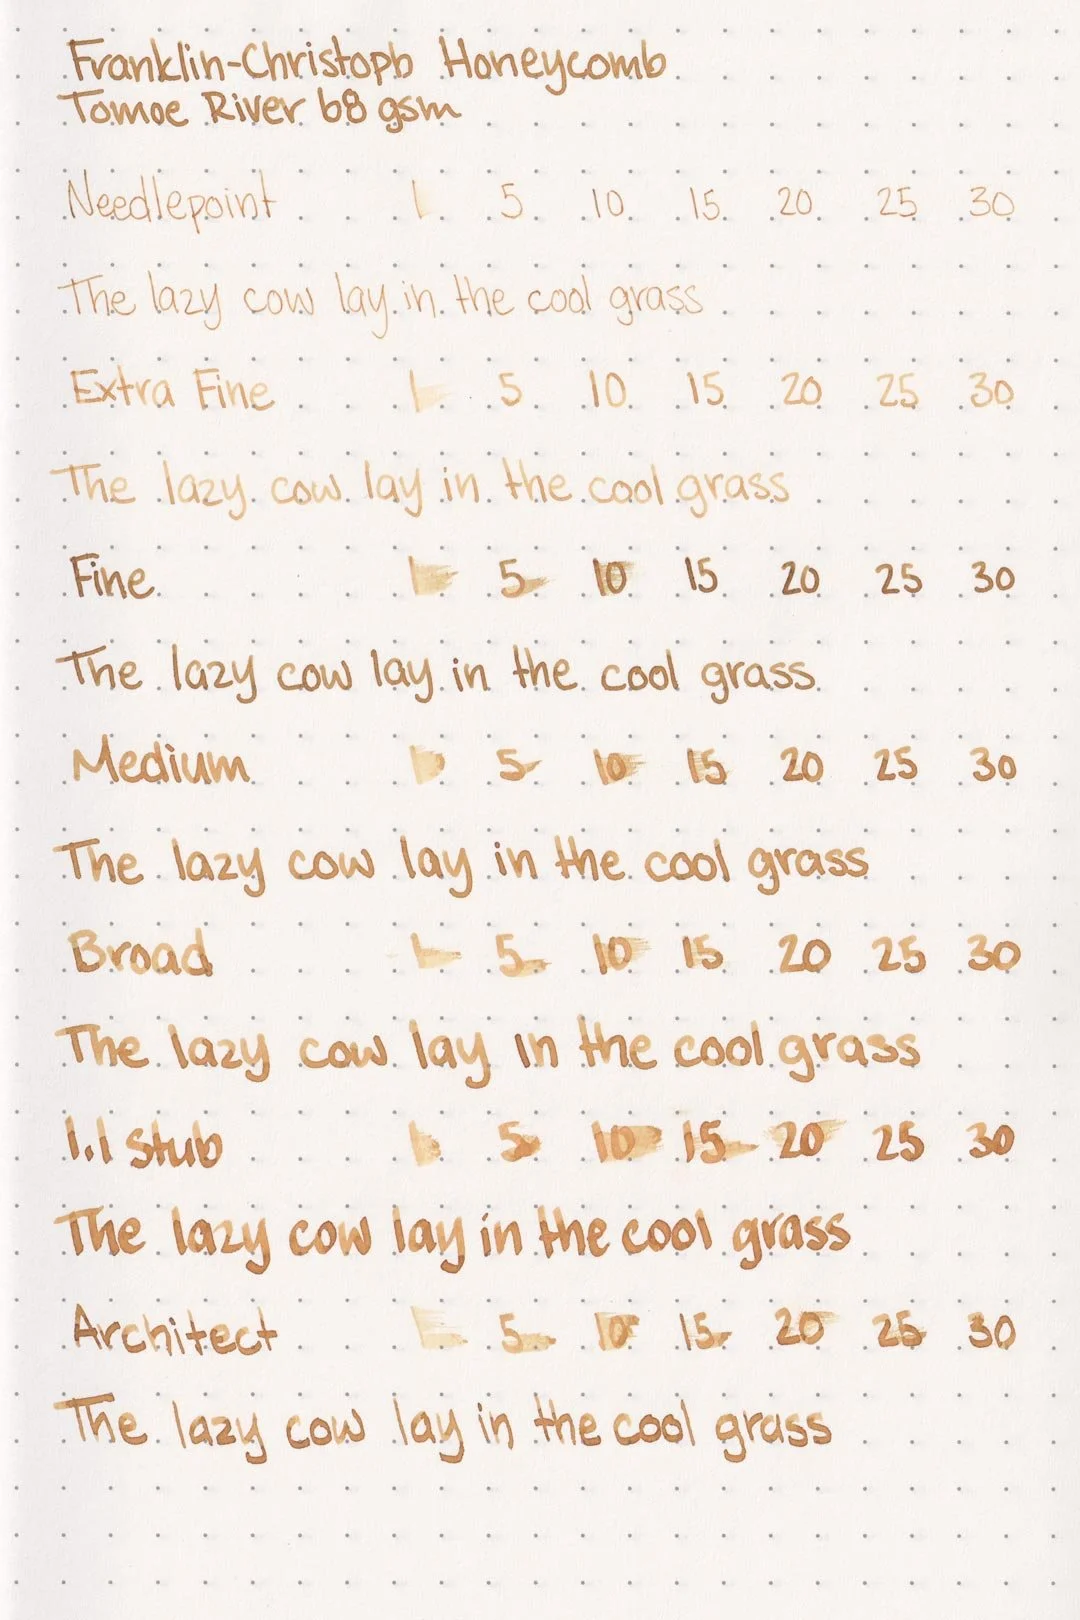 Franklin-Christoph Honeycomb
Tomoe River 68 gsm
Needlepoint 1 5 10 15 20 25 30
The lazy cow lay in the cool grass
Extra Fine 1 5 10 15 20 25 30
The lazy cow lay in the cool grass
Fine 1 5 10 15 20 25 30
The lazy cow lay in the cool grass
Medium 1 5 10 15 20 25 30
The lazy cow lay in the cool grass
Broad 1 5 10 15 20 25 30
The lazy cow lay in the cool grass
1.1 Stub 1 5 10 15 20 25 30
The lazy cow lay in the cool grass
Architect 1 5 10 15 20 25 30
The lazy cow lay in the cool grass